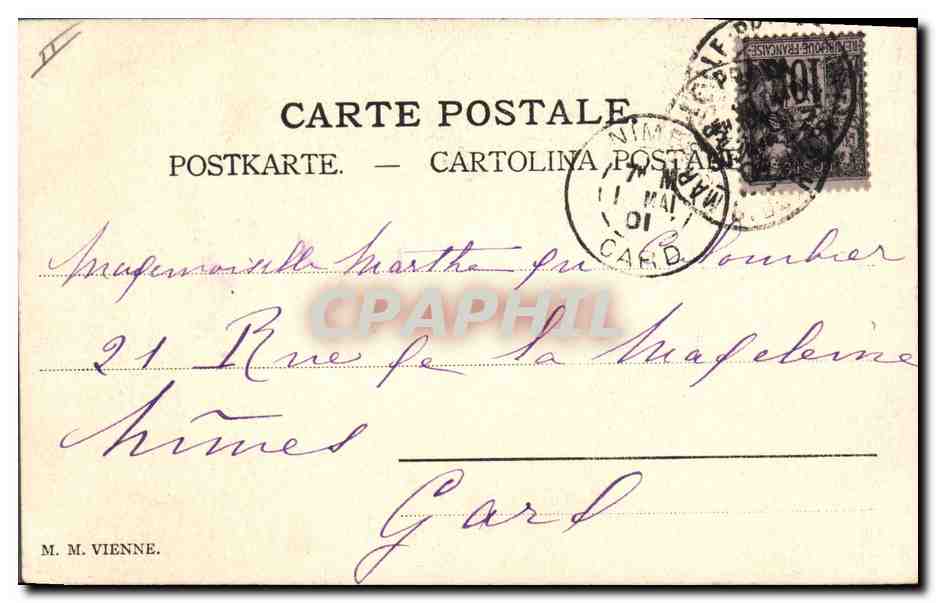 II
CARTE POSTALE.
POSTKARTE. — CARTOLINA POSTALE
RÉPUBLIQUE FRANÇAISE
10
NIMES
7 M
1 MAI
01
GARD
Mademoiselle Marthe du Colombier
21 Rue de la Madeleine
Nîmes
Gard
M. M. VIENNE.
CPAPHIL